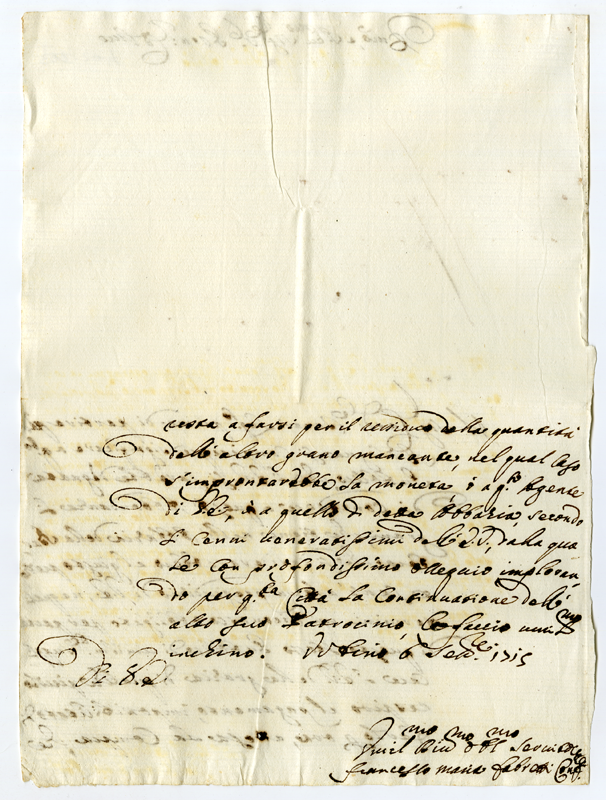 resta a farsi per il residuo della quantità
dell'altro grano mancante, nel qual caso
s'improntarebbe la moneta ò a q.to Agente
di VE, ò a quello di detta Abbazia, secondo
i cenni veneratissimi dell'EV, dalla qua
le con profondissimo ossequio imploran
do per q.ta Città la continuatione dell'
alto suo Patrocinio, le faccio um.mo
inchino. Urbino 6 Set.bre 1715
Di V.E.
Umil.mo Div.mo Obl.mo Servitore
Francesco Maria Conf.